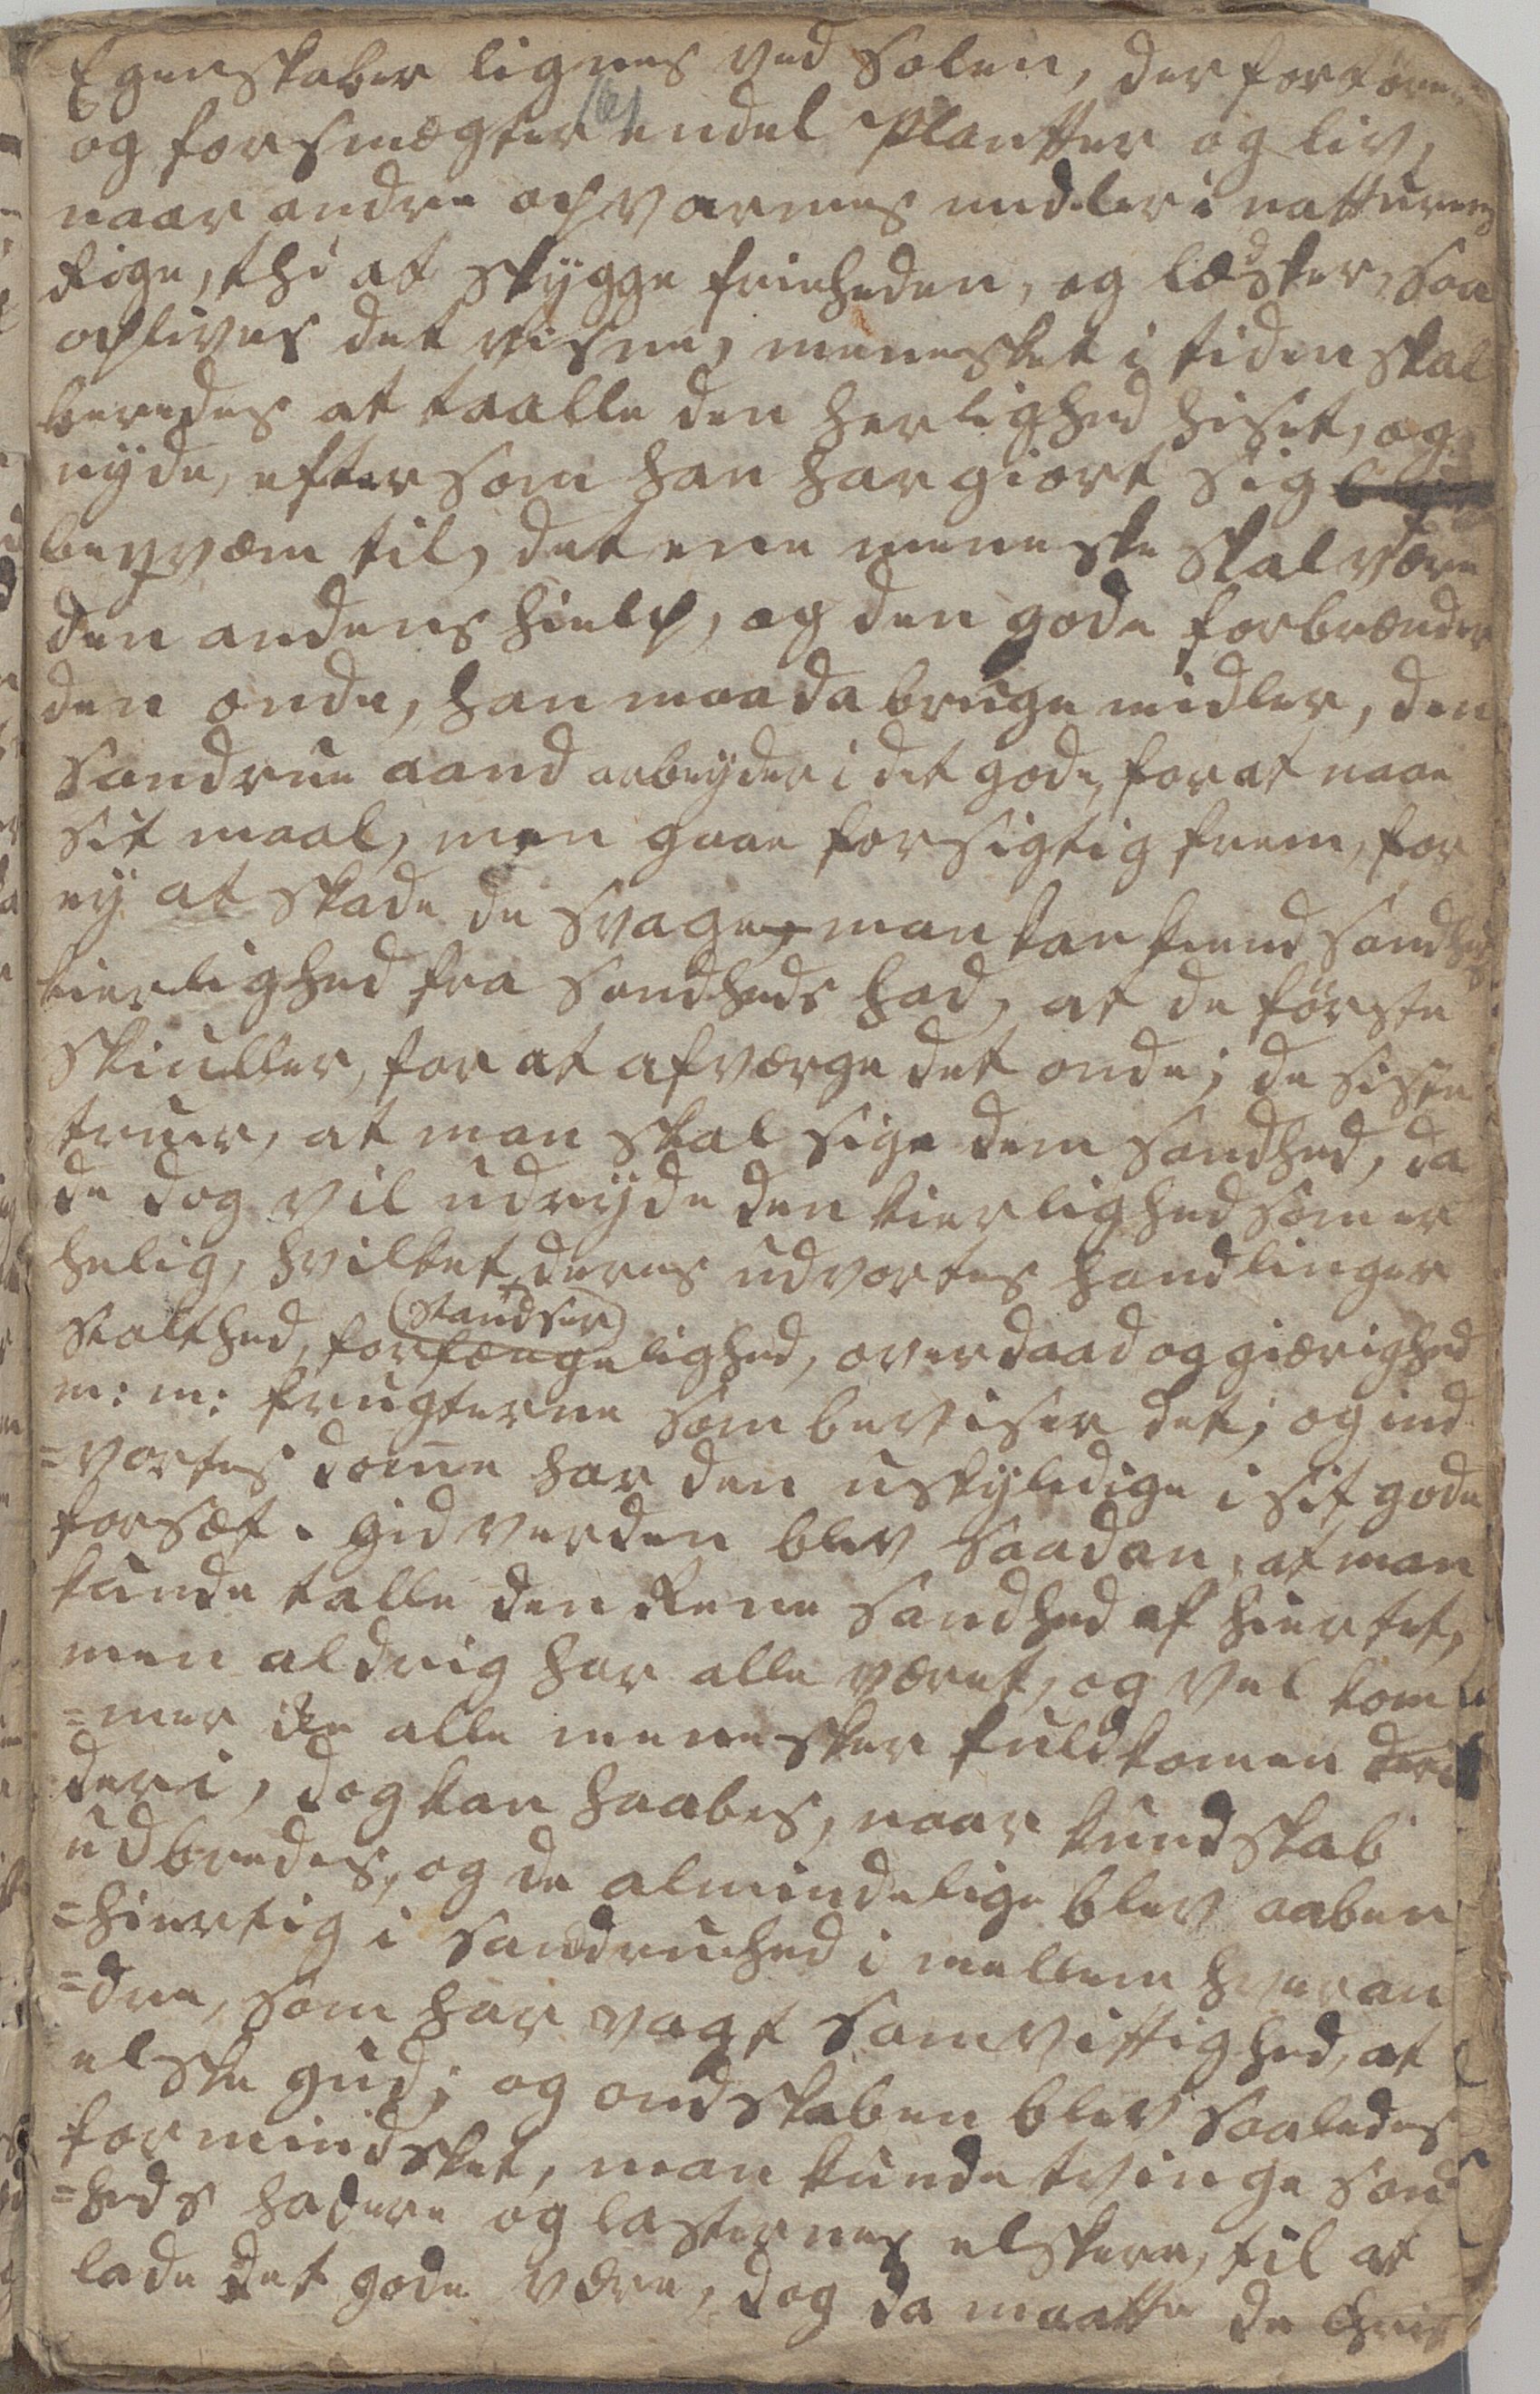 Egenskaber lignes ved Solen, der fortörrer
og forsmægter endel Plantter og liv,
naar andre opvarmes midler i natturens
Rige, thi at skygge frieheden, og lædsker, saa
oplives det visne, mennesket i tiden skal
beredes at taalle den herlighed hiset, og
nyde, efter som han har giort sig
beqvæm til, det ene menneske skal være
den andens hielp, og den gode forbrænder
den onde, han maa da bruge midler, den
Sandrue aand arbeyder i det gode, for at naae
sit maal, men gaae forsigtig frem, for
ey at skade de Svage, man kan kiend Sandheds
kierlighed fra Sandheds had, at de förste
skiuller, for at afværge det onde; de siste
truer, at man skal sige dem Sandhed, da
de dog vil udryde den kierlighed som er
helig, hvilket deres udvortes handlinger
Standser
Stolthed, forfængelighed, overdaad og giærighed
m: m: frugterne som beviser det; og ind
=vortes domme har den uskyldige i sit gode
forsæt. Gid verden blev saadan, at man
kunde talle den Rene Sandhed af hiertet,
men aldrig har alle været, og vel kom
=mer ike alle mennesker fuldkomen
deri, dog kan haabes, naar kundskab
udbredes, og de almindelige blev aaben
=hiertig i Sandruhed i mellem hveran
=dre, som har vagt Samvittighed, at
elske gud; og ondskaben blev saaledes
formindsket, man kunde tvinge Sand
=heds hadere og lasternes elskere, til at
lade det gode være, dog da maatte de